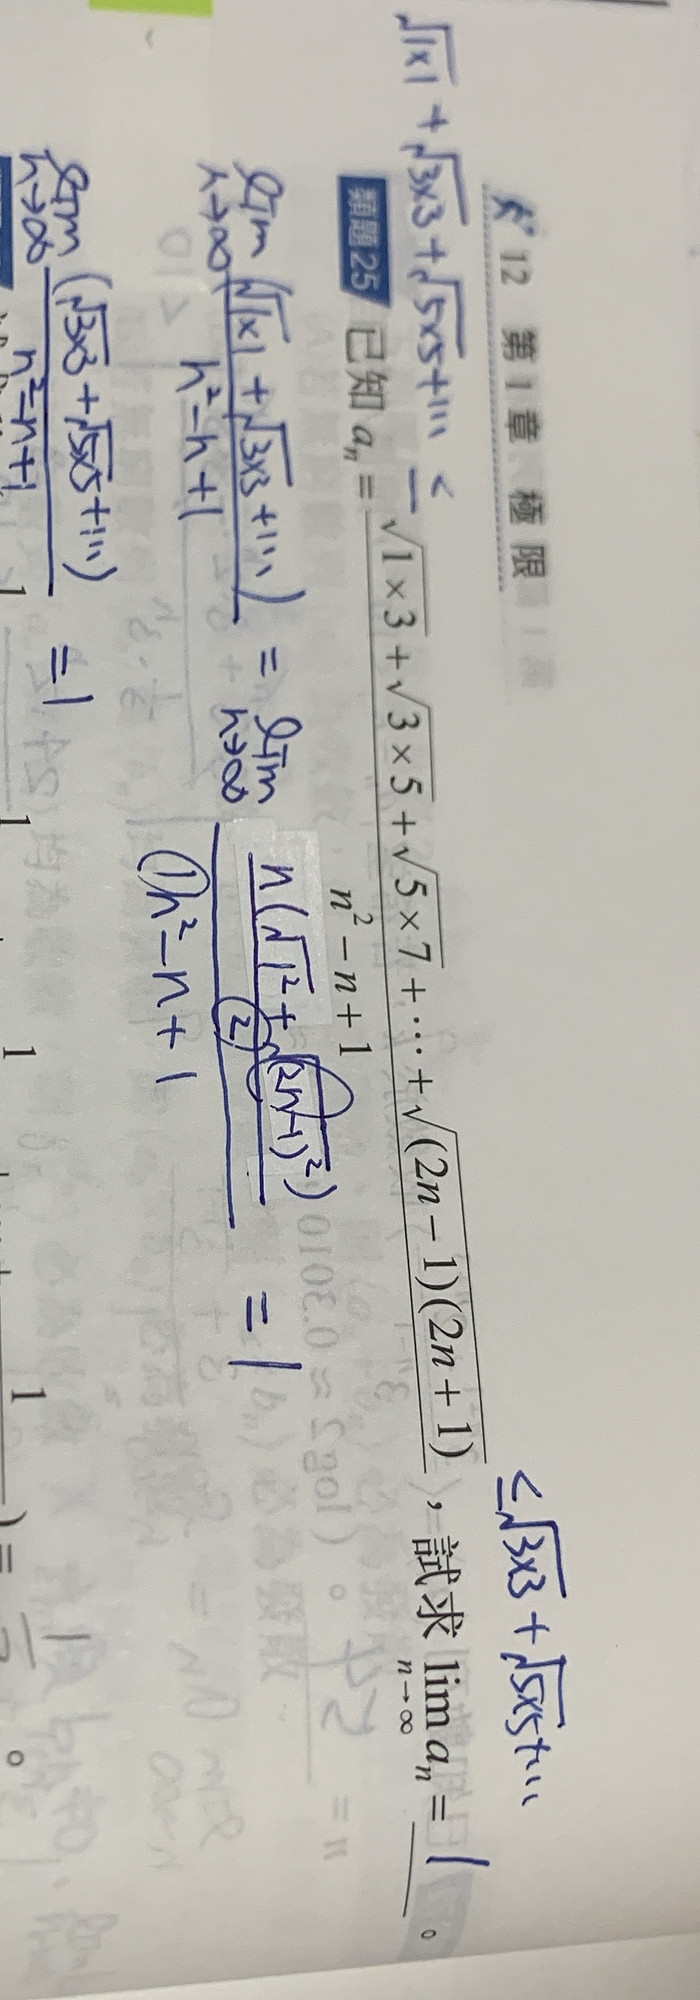 12 第1章 極限
√1×1 + √3×3 + √5×5 + ... ≤
≤ √3×3 + √5×5 + ...
類題25 已知 aₙ = (√1×3 + √3×5 + √5×7 + ⋯ + √(2n−1)(2n+1)) / (n²−n+1) ,試求 lim n→∞ aₙ = 1 。
lim n→∞ (√1×1 + √3×3 + ...) / (n²−n+1) = lim n→∞ (n(√1² + √(2n−1)²) / 2) / (1n²−n+1) = 1
lim n→∞ (√3×3 + √5×5 + ...) / (n²−n+1) = 1